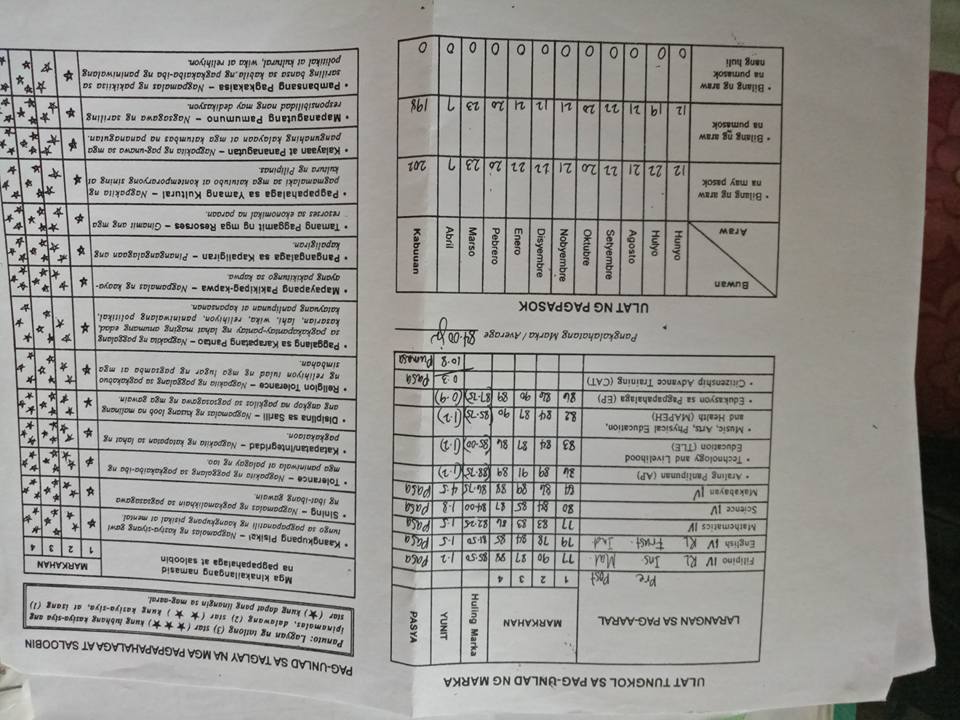 ULAT TUNGKOL SA PAG-UNLAD NG MARKA
LARANGAN SA PAG-AARAL MARKAHAN Huling Marka YUNIT PASYA
Pre Post 1 2 3 4
Filipino IV RL Ins. Mat. 77 90 87 88 85.50 1.2 Pasa
English IV RL Frust. Ind 79 78 84 85 81.50 1.5 Pasa
Mathematics IV 77 83 83 86 82.25 1.5 Pasa
Science IV 80 84 85 87 84.00 1.8 Pasa
Makabayan IV 86 89 88 86.75 4.5 Pasa
• Araling Panlipunan (AP) 89 91 89 (88.75) (1.2)
• Technology and Livelihood
Education (TLE) 83 84 87 86 (85.00) (1.2)
• Music, Arts, Physical Education,
and Health (MAPEH) 82 84 87 90 (85.75) (1.2)
• Edukasyon sa Pagpapahalaga (EP) 86 86 90 89 (87.75) (0.9)
• Citizenship Advance Training (CAT) 0.3 Pasa
10.8 Pumasa
Pangkalahatang Marka / Average 84.00
ULAT NG PAGPASOK
Buwan
Araw
Hunyo Hulyo Agosto Setyembre Oktubre Nobyembre Disyembre Enero Pebrero Marso Abril Kabuuan
• Bilang ng araw
na may pasok
12 22 21 22 20 21 22 22 20 23 7 202
• Bilang ng araw
na pumasok
12 19 21 22 20 21 12 21 20 23 7 198
• Bilang ng araw
na pumasok
nang huli
0 0 0 0 0 0 0 0 0 0 0 0
PAG-UNLAD SA TAGLAY NA MGA PAGPAPAHALAGA AT SALOOBIN
Panuto: Lagyan ng tatlong (3) star (★★★) kung lubhang kasiya-siya ang
ipinamalas, dalawang (2) star (★ ★) kung kasiya-siya, at isang (1)
star (★) kung dapat pang linangin sa mag-aaral.
Mga kinakailangang namasid
na pagpapahalaga at saloobin
MARKAHAN
1 2 3 4
• Kaangkupang Pisikal – Nagpamalas ng kasiya-siyang gawi
tungo sa pagpapanatili ng kaangkupang pisikal at mental.
• Sining – Nagpamalas ng pagkamalikhain sa pagsasagawa
ng ibat-ibang gawain.
• Tolerance – Nagpakita ng paggalang sa pagkakaiba-iba ng
mga paniniwala at palagay ng tao.
• Katapatan/Integridad – Nagpakita ng katapatan sa lahat ng
pagkakataon.
• Disiplina sa Sarili – Nagpamalas ng kusang loob na malinang
ang angkop na pagkilos sa pagsasagawa ng mga gawain.
• Religion Tolerance – Nagpakita ng paggalang sa pagkakabuo
ng relihiyon tulad ng mga lugar ng pagsamba at mga
simbahan.
• Paggalang sa Karapatang Pantao – Nagpakita ng paggalang
sa pagkakapantay-pantay ng lahat maging anumang edad,
kasarian, lahi, wika, relihiyon, paniniwalang politikal,
katayuang panlipunan at kapansanan.
• Mapayapang Pakikipag-kapwa – Nagpamalas ng kaaya-
ayang pakikitungo sa kapwa.
• Pangangalaga sa Kapaligiran – Pinangangalagaan ang
kapaligiran.
• Tamang Paggamit ng mga Resorses – Ginamit ang mga
resorses sa ekonomikal na paraan.
• Pagpapahalaga sa Yamang Kultural – Nagpakita ng
pagmamalaki sa mga katutubo at kontemporaryong sining at
kultura ng Pilipinas.
• Kalayaan at Pananagutan – Nagpakita ng pag-unawa sa mga
pangunahing kalayaan at mga katumbas na pananagutan.
• Mapanagutang Pamumuno – Nagsagawa ng sariling
responsibilidad nang may dedikasyon.
• Pambansang Pagkakaisa – Nagpamalas ng pakikiisa sa
sariling bansa sa kabila ng pagkakaiba-iba ng paniniwalang
politikal at kultural, wika at relihiyon.